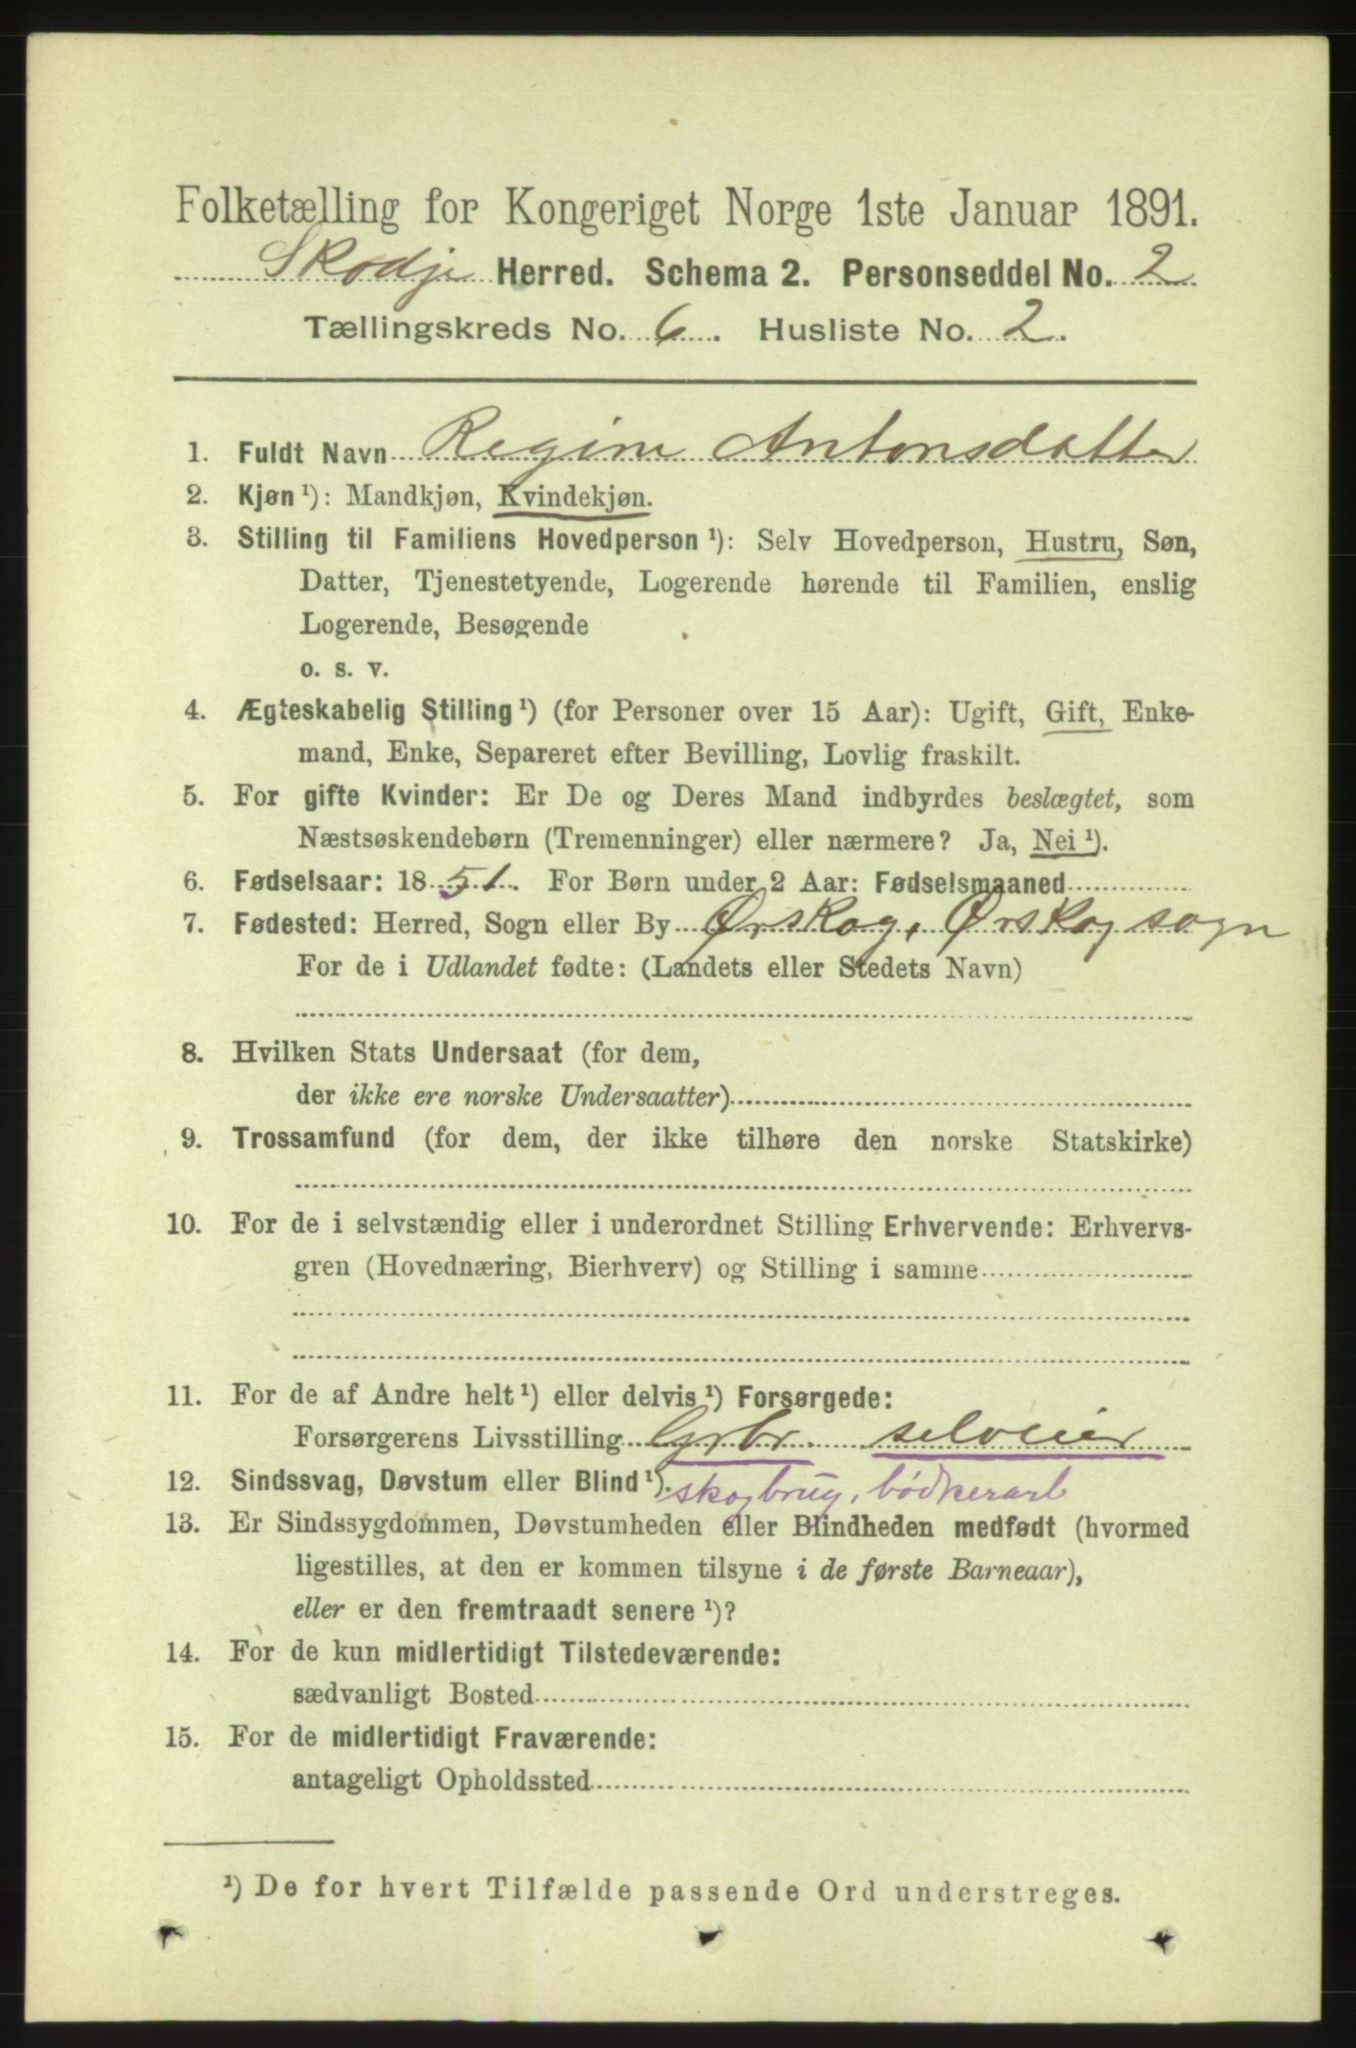 Folketælling for Kongeriget Norge 1ste Januar 1891.
Skodje Herred. Schema 2. Personseddel No. 2
Tællingskreds No. 6. Husliste No. 2.
1. Fuldt Navn Regine Antonsdatter
2. Kjøn ¹): Mandkjøn, Kvindekjøn.
3. Stilling til Familiens Hovedperson ¹): Selv Hovedperson, Hustru, Søn,
Datter, Tjenestetyende, Logerende hørende til Familien, enslig
Logerende, Besøgende
o. s. v.
4. Ægteskabelig Stilling ¹) (for Personer over 15 Aar): Ugift, Gift, Enke-
mand, Enke, Separeret efter Bevilling, Lovlig fraskilt.
5. For gifte Kvinder: Er De og Deres Mand indbyrdes beslægtet, som
Næstsøskendebørn (Tremenninger) eller nærmere? Ja, Nei ¹).
6. Fødselsaar: 1851. For Børn under 2 Aar: Fødselsmaaned
7. Fødested: Herred, Sogn eller By Ørskog, Ørskog sogn
For de i Udlandet fødte: (Landets eller Stedets Navn)
8. Hvilken Stats Undersaat (for dem,
der ikke ere norske Undersaatter)
9. Trossamfund (for dem, der ikke tilhøre den norske Statskirke)
10. For de i selvstændig eller i underordnet Stilling Erhvervende: Erhvervs-
gren (Hovednæring, Bierhverv) og Stilling i samme
11. For de af Andre helt ¹) eller delvis ¹) Forsørgede:
Forsørgerens Livsstilling Grbr. selveier
12. Sindssvag, Døvstum eller Blind ¹). skogbrug, bødkerarb
13. Er Sindssygdommen, Døvstumheden eller Blindheden medfødt (hvormed
ligestilles, at den er kommen tilsyne i de første Barneaar),
eller er den fremtraadt senere ¹)?
14. For de kun midlertidigt Tilstedeværende:
sædvanligt Bosted
15. For de midlertidigt Fraværende:
antageligt Opholdssted
¹) De for hvert Tilfælde passende Ord understreges.